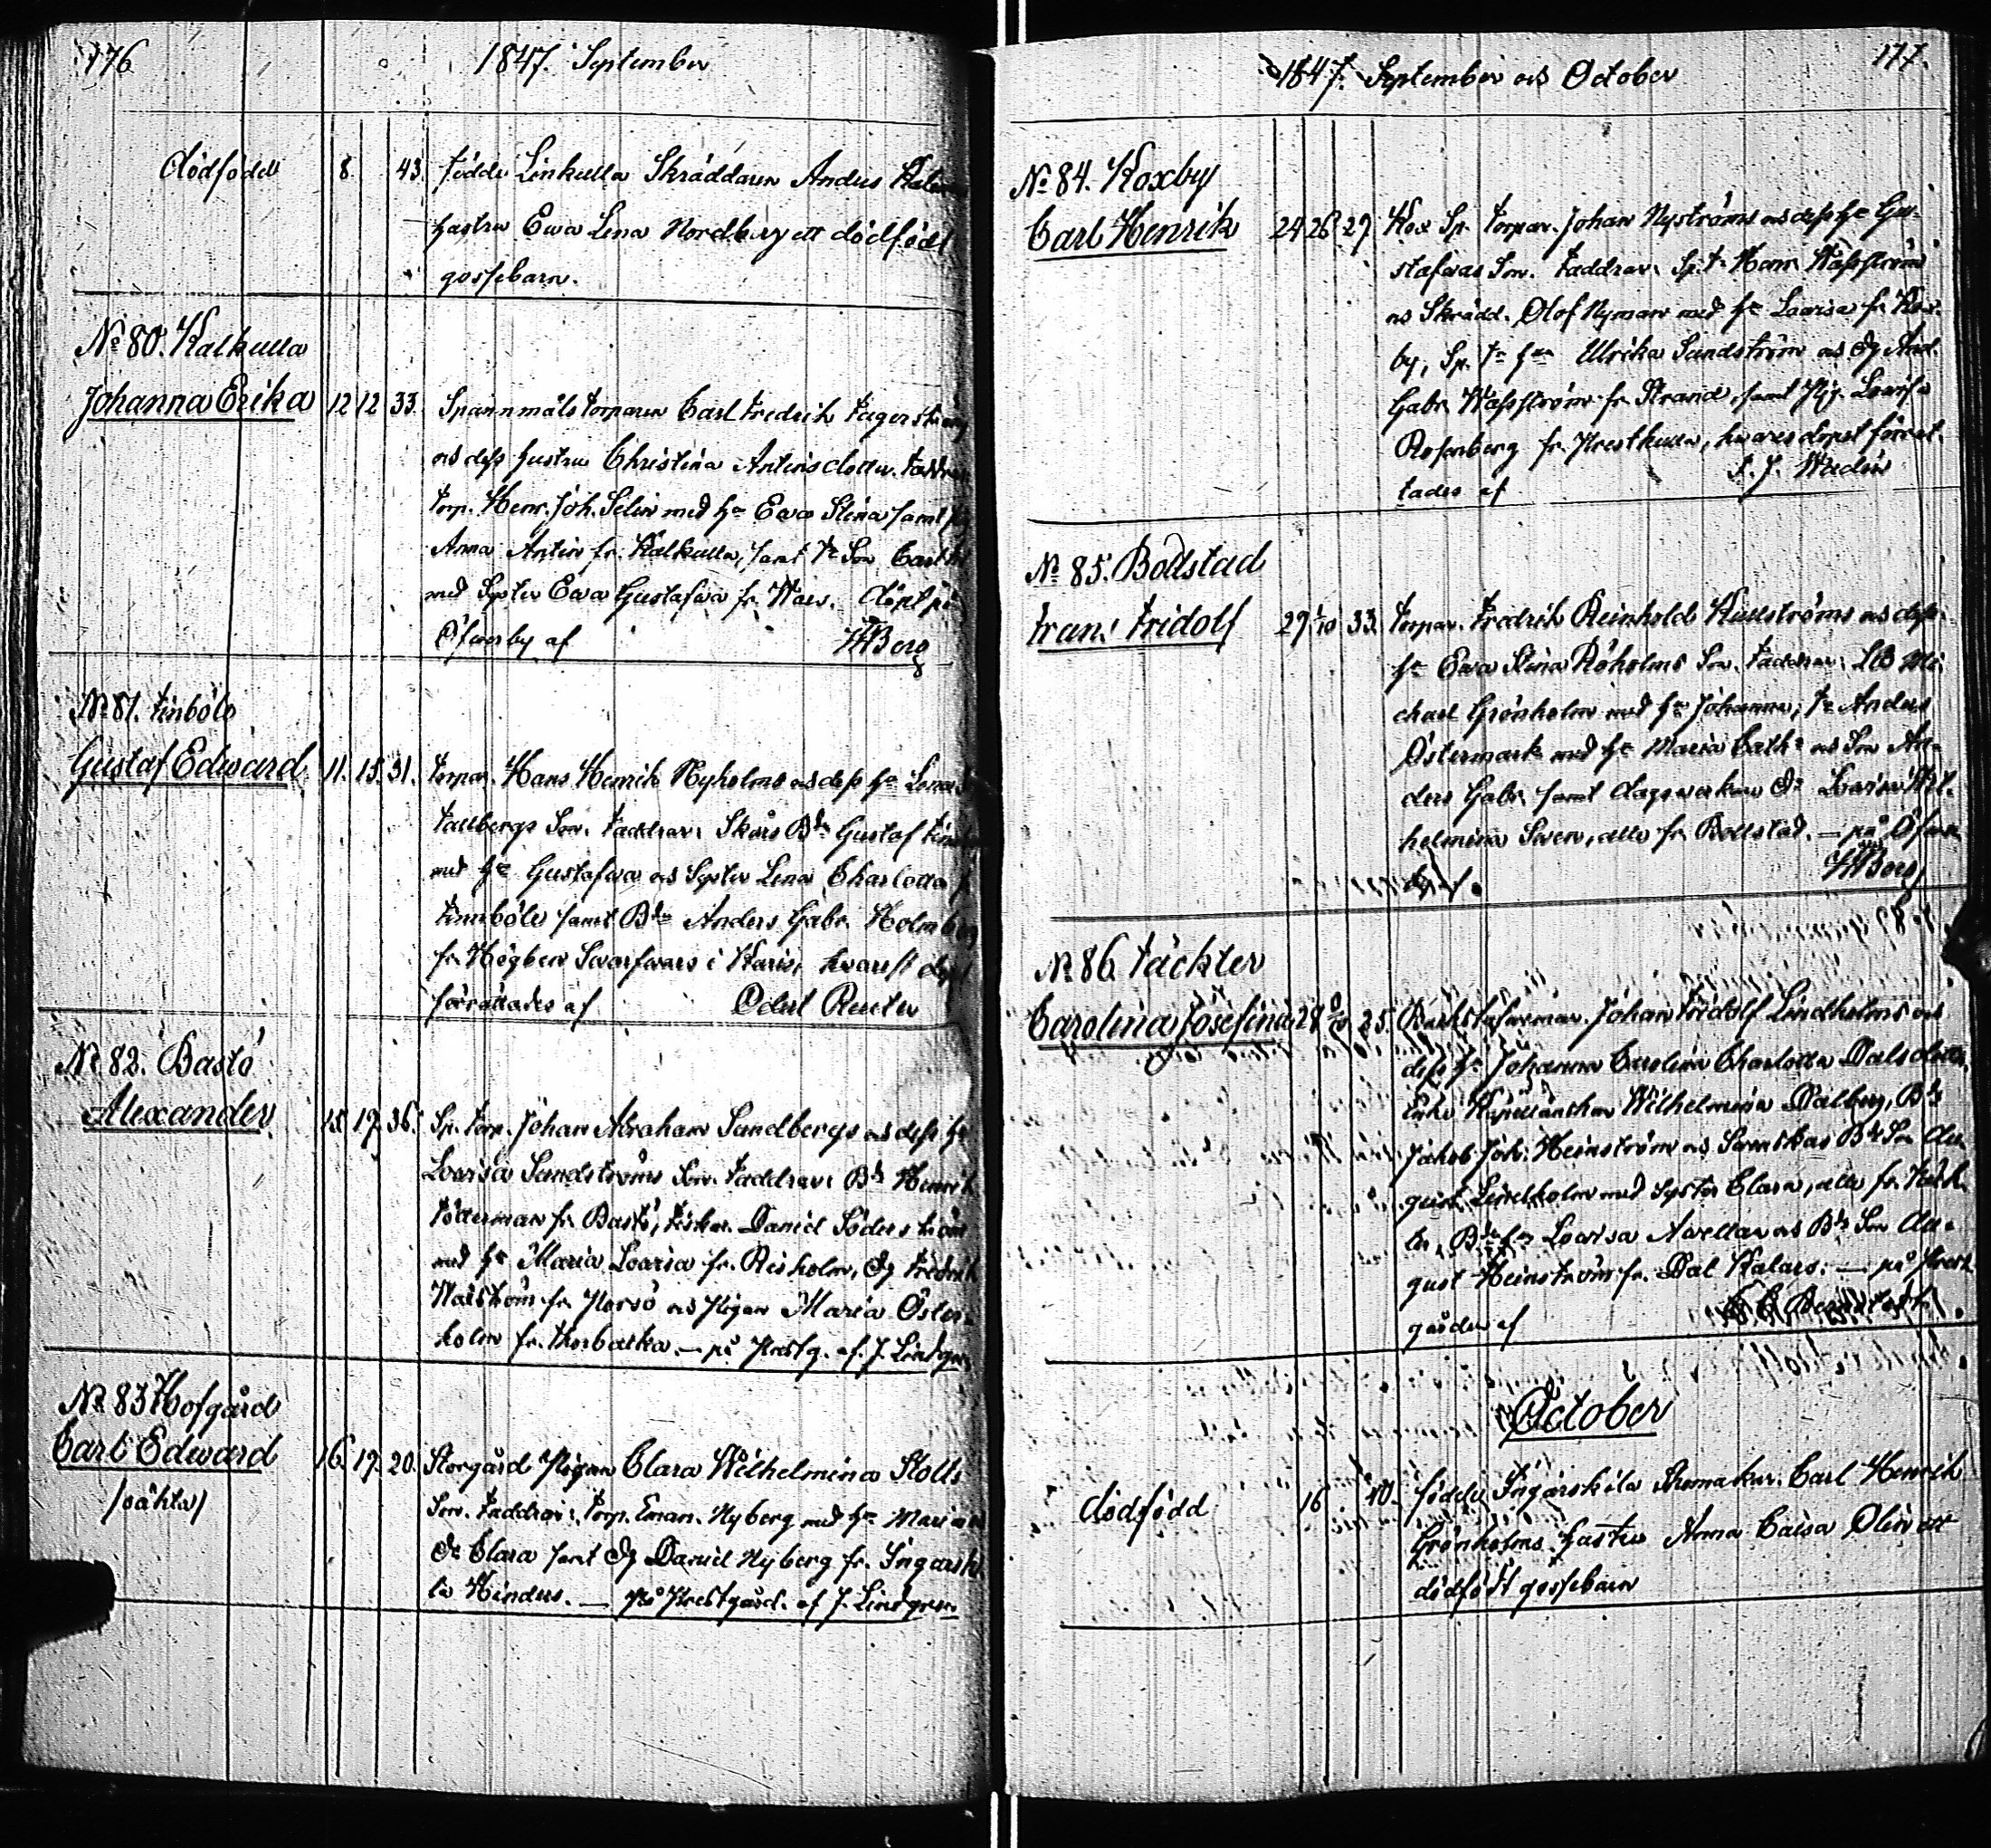 176
1847. September
dödfödd 8. 43. födde Linkulla Skräddaren Anders
hustru Ewa Lena Nordberg ett dödfödt
gossebarn.
No 80. Kalkulla
Johanna Erika 12 12 33. Spannmåls torparen Carl Fredrik
och dess hustru Christina Antins dotter.
torp. Henr. Joh. Selin med hu Ewa Stina samt
Anna Antin fr. Kalkulla, samt Son Carl
med Syster Ewa Gustafwa fr. döpt på
Öfwerby af Berg
No 81. Finböle
Gustaf Edward 11. 15. 31. torpar. Hans Henrik Nyholms och dess hu Lena
Tallbergs Son. Faddrar: Skårs Bdn Gustaf
med hu Gustafwa och Syster Lena Charlotta
Finnböle samt Bdn Anders Gabr.
fr. Högben Swarfwars i Karis, hwarest
förrättades af Reuter
No 82. Bastö
Alexander 15. 19. 36. Sp. torp. Johan Abraham Sandbergs och dess hu
Lovisa Sandströms Son. Faddrar: Bdn Henrik
Söderman fr. Bastö, Fiskar. Daniel
med hu Maria Lovisa fr. Risholm, Dg Fredrik
fr. Porsö och Pigan Maria Öster-
holm fr. Thorbacka. — på Prestg. af J. Lindgren
No 83 Hofgård
Carl Edward 16. 19. 20. Storgård Pigan Clara Wilhelmina Stolts
/oäkta/ Son. Faddrar: torp. Eman. Nyberg med hu Maria
Dr Clara samt Dg Daniel Nyberg fr. Ingarski-
la Hinders. — På Prestgård. af J. Lindgren
177.
1847. September och October
No 84. Koxby
Carl Henrik 24 26 29 Kox Sp. torpar. Johan Nyströms och dess hu Gu-
stafwas Son. Faddrar: Sp. tr Henr. Wasström
och Skrädd. Olof Nyman med hu Lovisa fr. Kox-
by, Sp. tr hu Ulrika Sandström och Dg And.
Gabr. Wasström fr. Strand, samt Pig. Lovisa
Rosenberg fr. Prestkulla, hwares dopet förrät-
tades af
No 85. Bollstad
Frans Fridolf 29 1/10 33. Torpar. Fredrik Reinhold Kullströms och dess
hu Ewa Stina Röholms Son. Faddrar: Mi-
chael Grönholm med hu Johanna, Tr Anders
Östermark med hu Maria Cath. och Son An-
ders Gabr. samt dagswerkar. Dr Lovisa Wil-
helmina Swen, alla fr. Bollstad. — på Öfwer-
by af Berg
No 86. Täckter
Carolina Josefina 28 25. Johan Fridolf Lindholms och
dess hu Johanna Carolina Charlotta Dals dotter.
Wilhelmina Dalberg, Bdn
Jakob Joh. Heinström och Bdn Son Au-
gust Lindholm med Syster Clara, alla fr. Täck-
ter, Bdn hu Lovisa Avellan och Bdn Son Au-
gust Heinström fr. Dal Kalars. — på Prest-
gården af
October
dödfödd 16 40. födde Ingarskila Skomakar. Carl Henrik
Grönholms hustru Anna Caisa Olin ett
dödfödt gossebarn